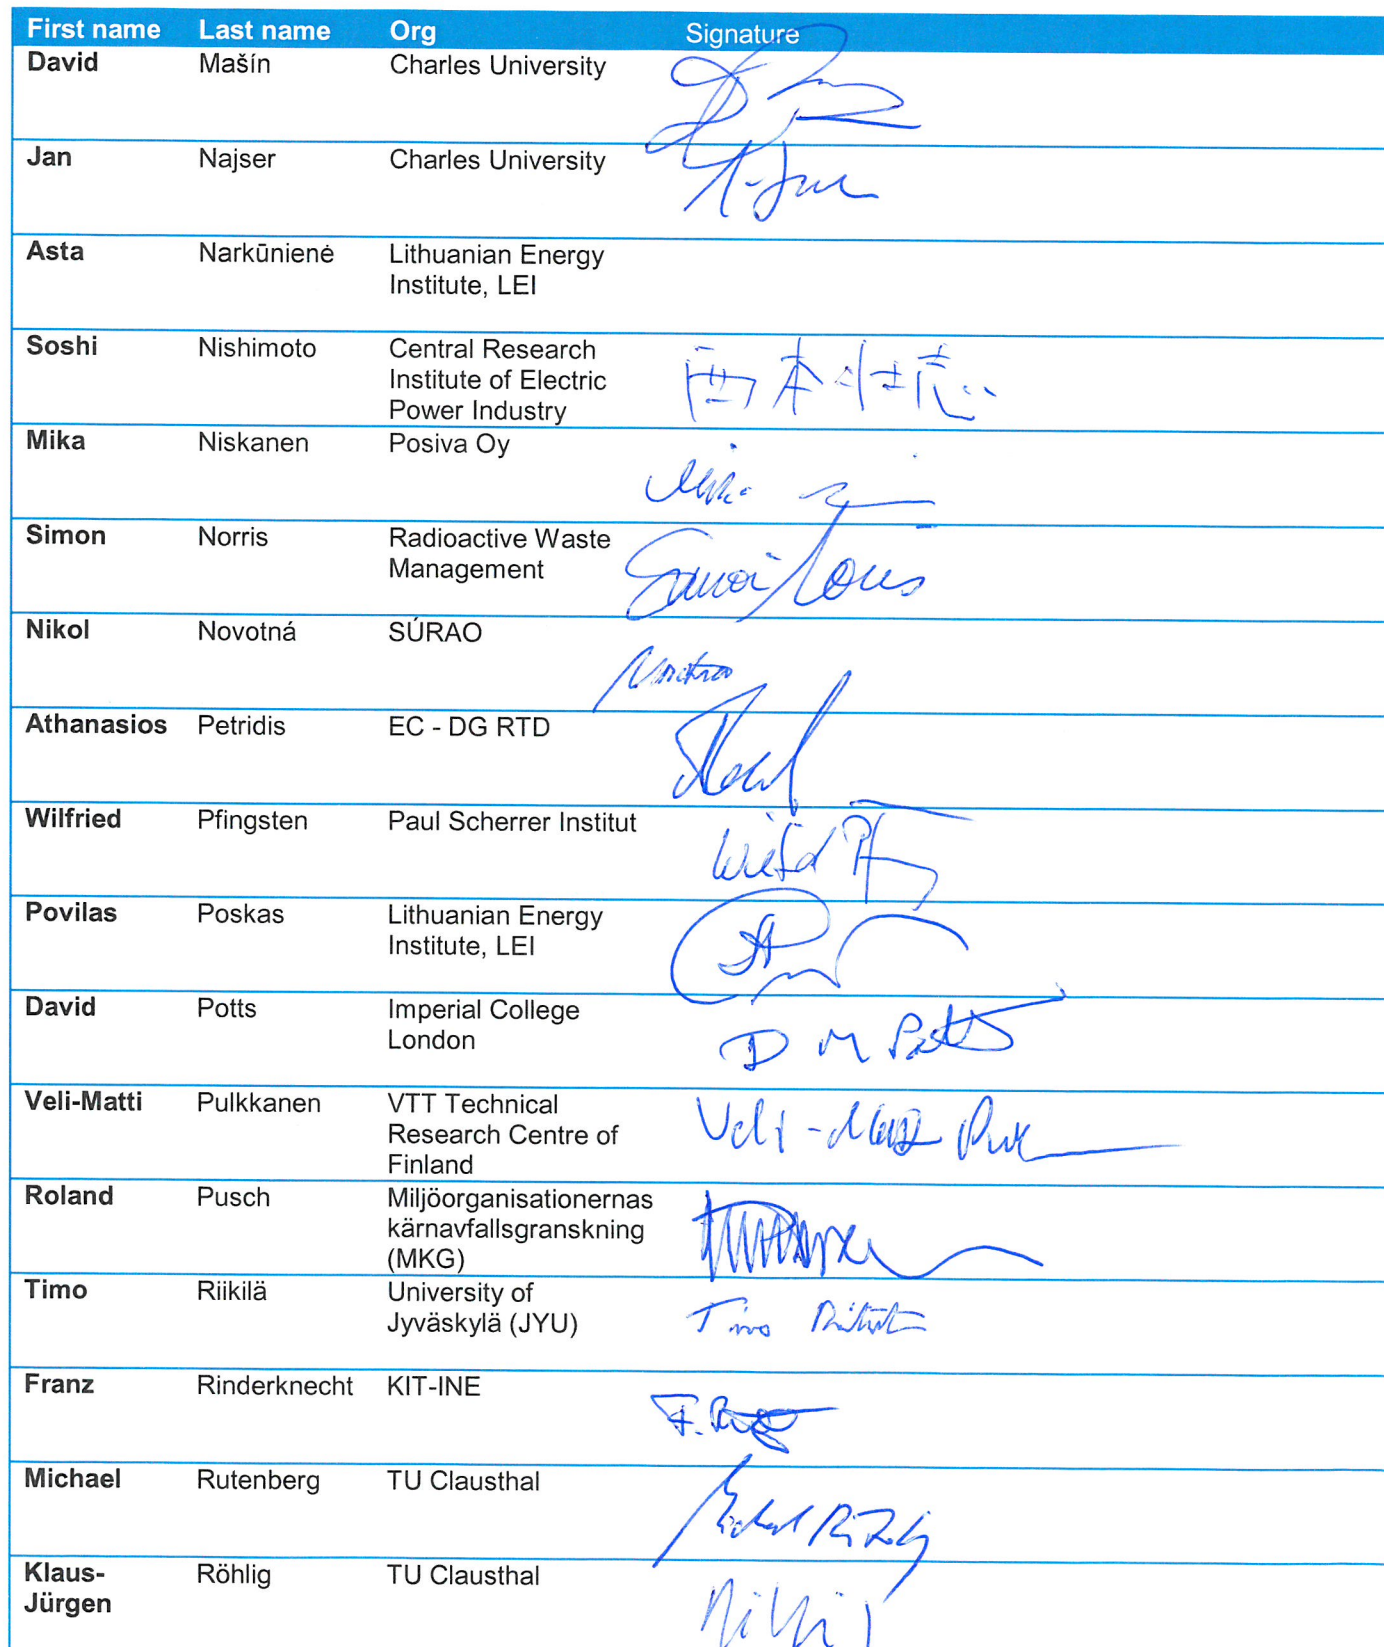 First name Last name Org Signature
David Mašín Charles University
Jan Najser Charles University
Asta Narkūnienė Lithuanian Energy
Institute, LEI
Soshi Nishimoto Central Research
Institute of Electric
Power Industry
Mika Niskanen Posiva Oy
Simon Norris Radioactive Waste
Management
Nikol Novotná SÚRAO
Athanasios Petridis EC - DG RTD
Wilfried Pfingsten Paul Scherrer Institut
Povilas Poskas Lithuanian Energy
Institute, LEI
David Potts Imperial College
London D M Potts
Veli-Matti Pulkkanen VTT Technical
Research Centre of
Finland
Roland Pusch Miljöorganisationernas
kärnavfallsgranskning
(MKG)
Timo Riikilä University of
Jyväskylä (JYU) Timo
Franz Rinderknecht KIT-INE
Michael Rutenberg TU Clausthal
Klaus- Röhlig TU Clausthal
Jürgen